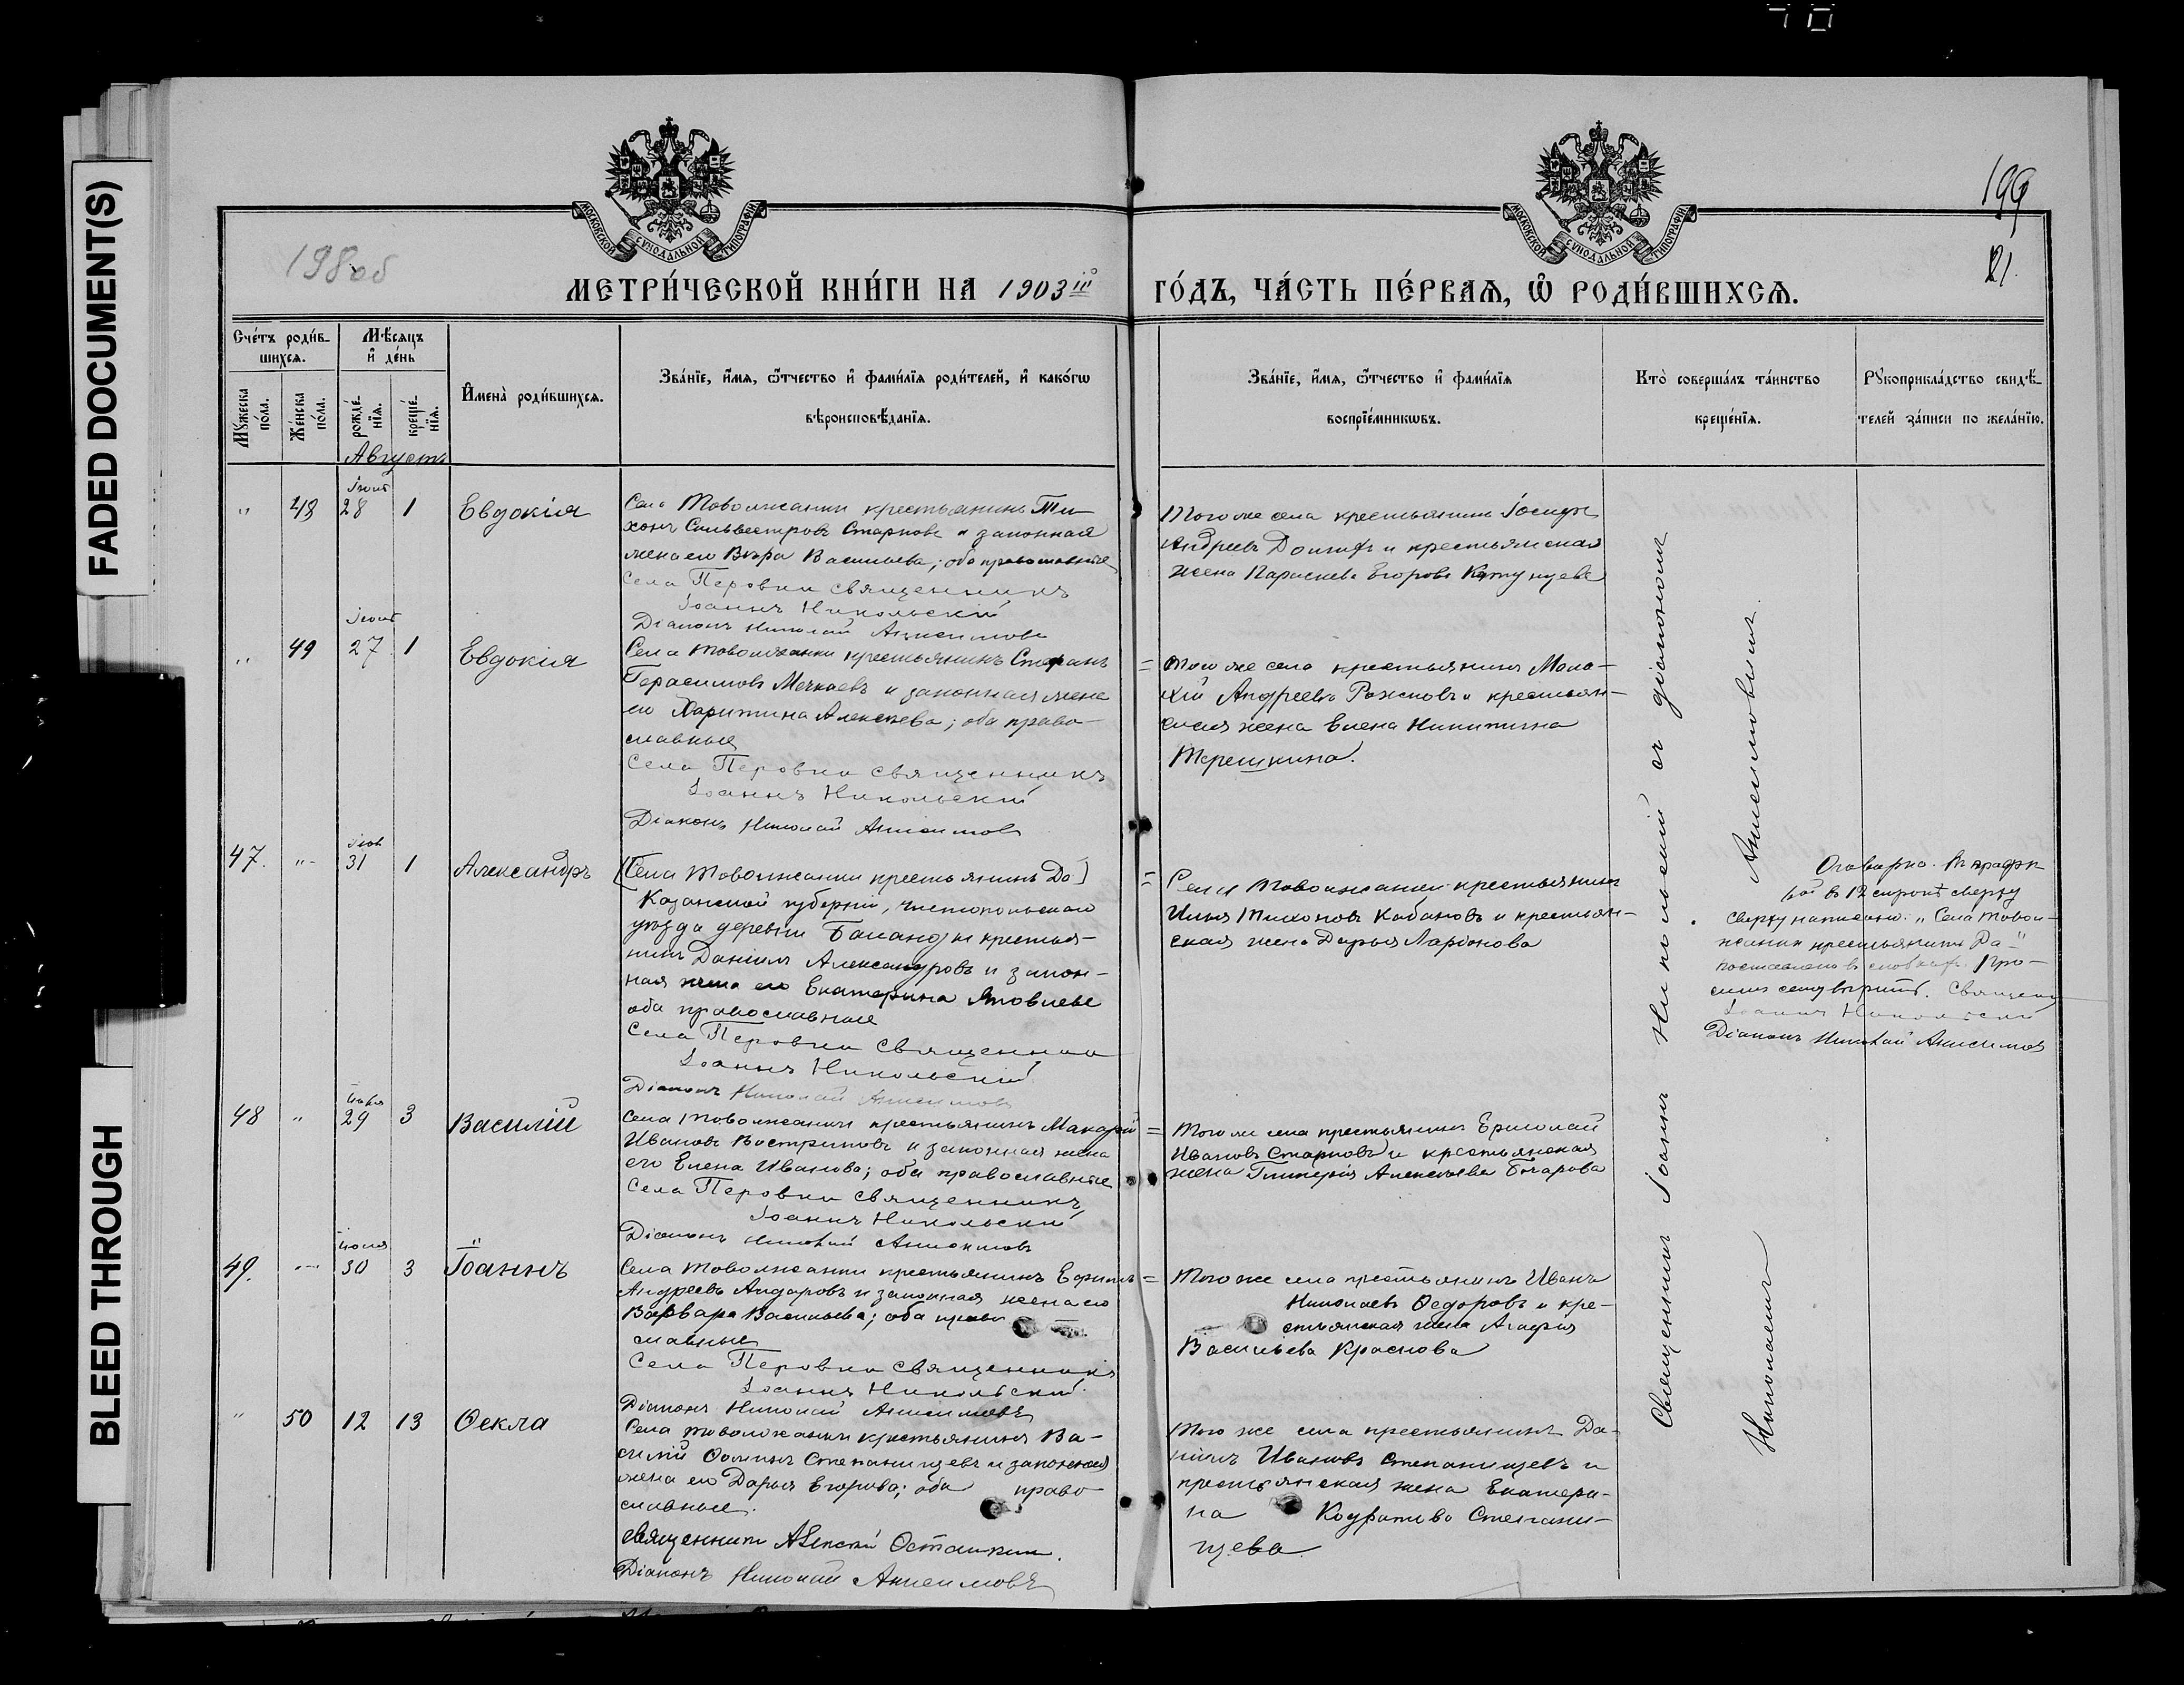 FADED DOCUMENT(S)
BLEED THROUGH
198об
199
21.
МОСКОВСКОЙ СѴНОДАЛЬНОЙ ТИПОГРАФІИ
МОСКОВСКОЙ СѴНОДАЛЬНОЙ ТИПОГРАФІИ
МЕТРИ́ЧЕСКОЙ КНИ́ГИ НА 1903 ій
ГО́ДЪ, ЧА́СТЬ ПЕ́РВАѦ, Ѡ РОДИ́ВШИХСѦ.
Сче́тъ роди́в-
шихсѧ.
Мѣ́сѧцъ
и де́нь
Мꙋ́жеска по́ла.
Же́нска по́ла.
рожде́-
нїѧ.
креще́-
нїѧ.
Имена̀ роди́вшихсѧ.
Зва́нїе, и́мѧ, ѻ́тчество и фами́лїѧ роди́телей, и како́гѡ
вѣроисповѣ́данїѧ.
Зва́нїе, и́мѧ, ѻ́тчество и фами́лїѧ
воспрїе́мникѡвъ.
Кто̀ соверша́лъ та́инство
креще́нїѧ.
Рꙋкоприкла́дство свидѣ́-
телей за́писи по жела́нїю.
Августъ
" 48 28 1 Евдокія
Села Товолжанки крестьянинъ Ти-
хонъ Сильвестровъ Старковъ и законная
жена его Вѣра Васильева; оба православные
Села Перовки священникъ
Іоаннъ Никольскій
Діаконъ Николай Анисимовъ
Того же села крестьянинъ Іосифъ
Андреевъ и крестьянская
жена Параскева Егорова
" 49 27 1 Евдокія
Села Товолжанки крестьянинъ Стефанъ
Герасимовъ и законная жена
его Харитина Алексѣева; оба право-
славные
Села Перовки священникъ
Іоаннъ Никольскій
Діаконъ Николай Анисимовъ
= Того же села крестьянинъ Мала-
хій Андреевъ Рожновъ и крестьян-
ская жена Елена Никитина
Терешкина.
47. " 31 1 Александръ
[Села Товолжанки крестьянинъ Да]
Казанской губерніи, чистопольскаго
уѣзда деревни крестья-
нинъ Даніилъ Александровъ и закон-
ная жена его Екатерина Яковлева
оба православные
Села Перовки Священникъ
Іоаннъ Никольскій
Діаконъ Николай Анисимовъ
= Села Товолжанки крестьянинъ
Илья Тихоновъ Кабановъ и крестьян-
ская жена Дарья Ларіонова
сверху написано: "Села Товол-
жанки крестьянинъ Да-"
Іоаннъ Никольскій
Діаконъ Николай Анисимовъ
48 " іюля 29 3 Василій
Села Товолжанки крестьянинъ Макарій
Ивановъ Востриковъ и законная жена
его Елена Иванова; оба православные
Села Перовки священникъ
Іоаннъ Никольскій
Діаконъ Николай Анисимовъ
= Того же села крестьянинъ Ермолай
Ивановъ Старковъ и крестьянская
жена Гликерія Алексѣева Бочарова
49. " іюля 30 3 Іоаннъ
Села Товолжанки крестьянинъ Ефимъ
Андреевъ и законная жена его
Варвара Васильева; оба право
славные
Села Перовки священникъ
Іоаннъ Никольскій
Діаконъ Николай Анисимовъ
= Того же села крестьянинъ Иванъ
Николаевъ Ѳедоровъ и кре-
стьянская жена Агафія
Васильева Краснова
" 50 12 13 Ѳекла
Села Товолжанки крестьянинъ Ва-
силій Ѳоминъ Степанищевъ и законная
жена его Дарья Егорова; оба право
славные.
Священникъ Алексій
Діаконъ Николай Анисимовъ
Того же села крестьянинъ Да-
ніилъ Ивановъ Степанищевъ и
крестьянская жена Екатери-
на Кодратова Степани-
щева.
Священникъ Іоаннъ Никольскій съ діакономъ
Николаемъ Анисимовымъ.